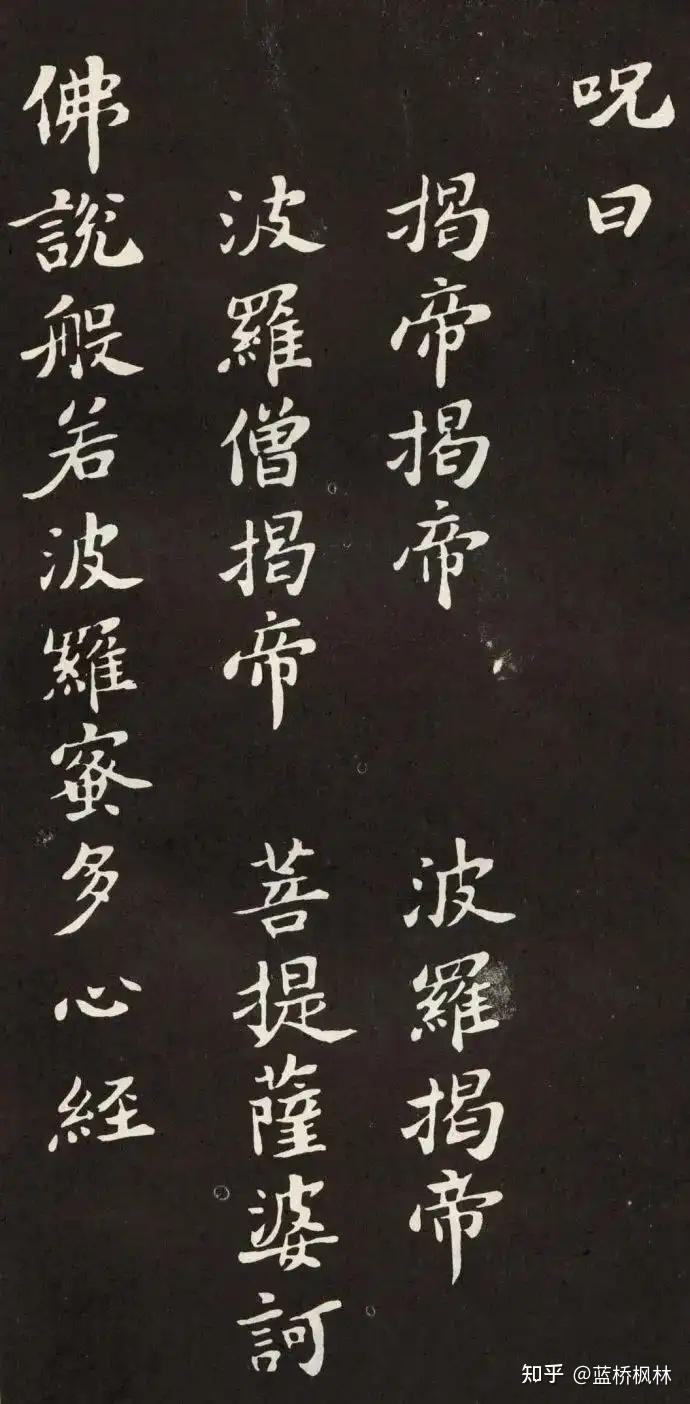 呪曰
揭帝揭帝 波羅揭帝
波羅僧揭帝 菩提薩婆訶
佛說般若波羅蜜多心経
知乎 @蓝桥枫林